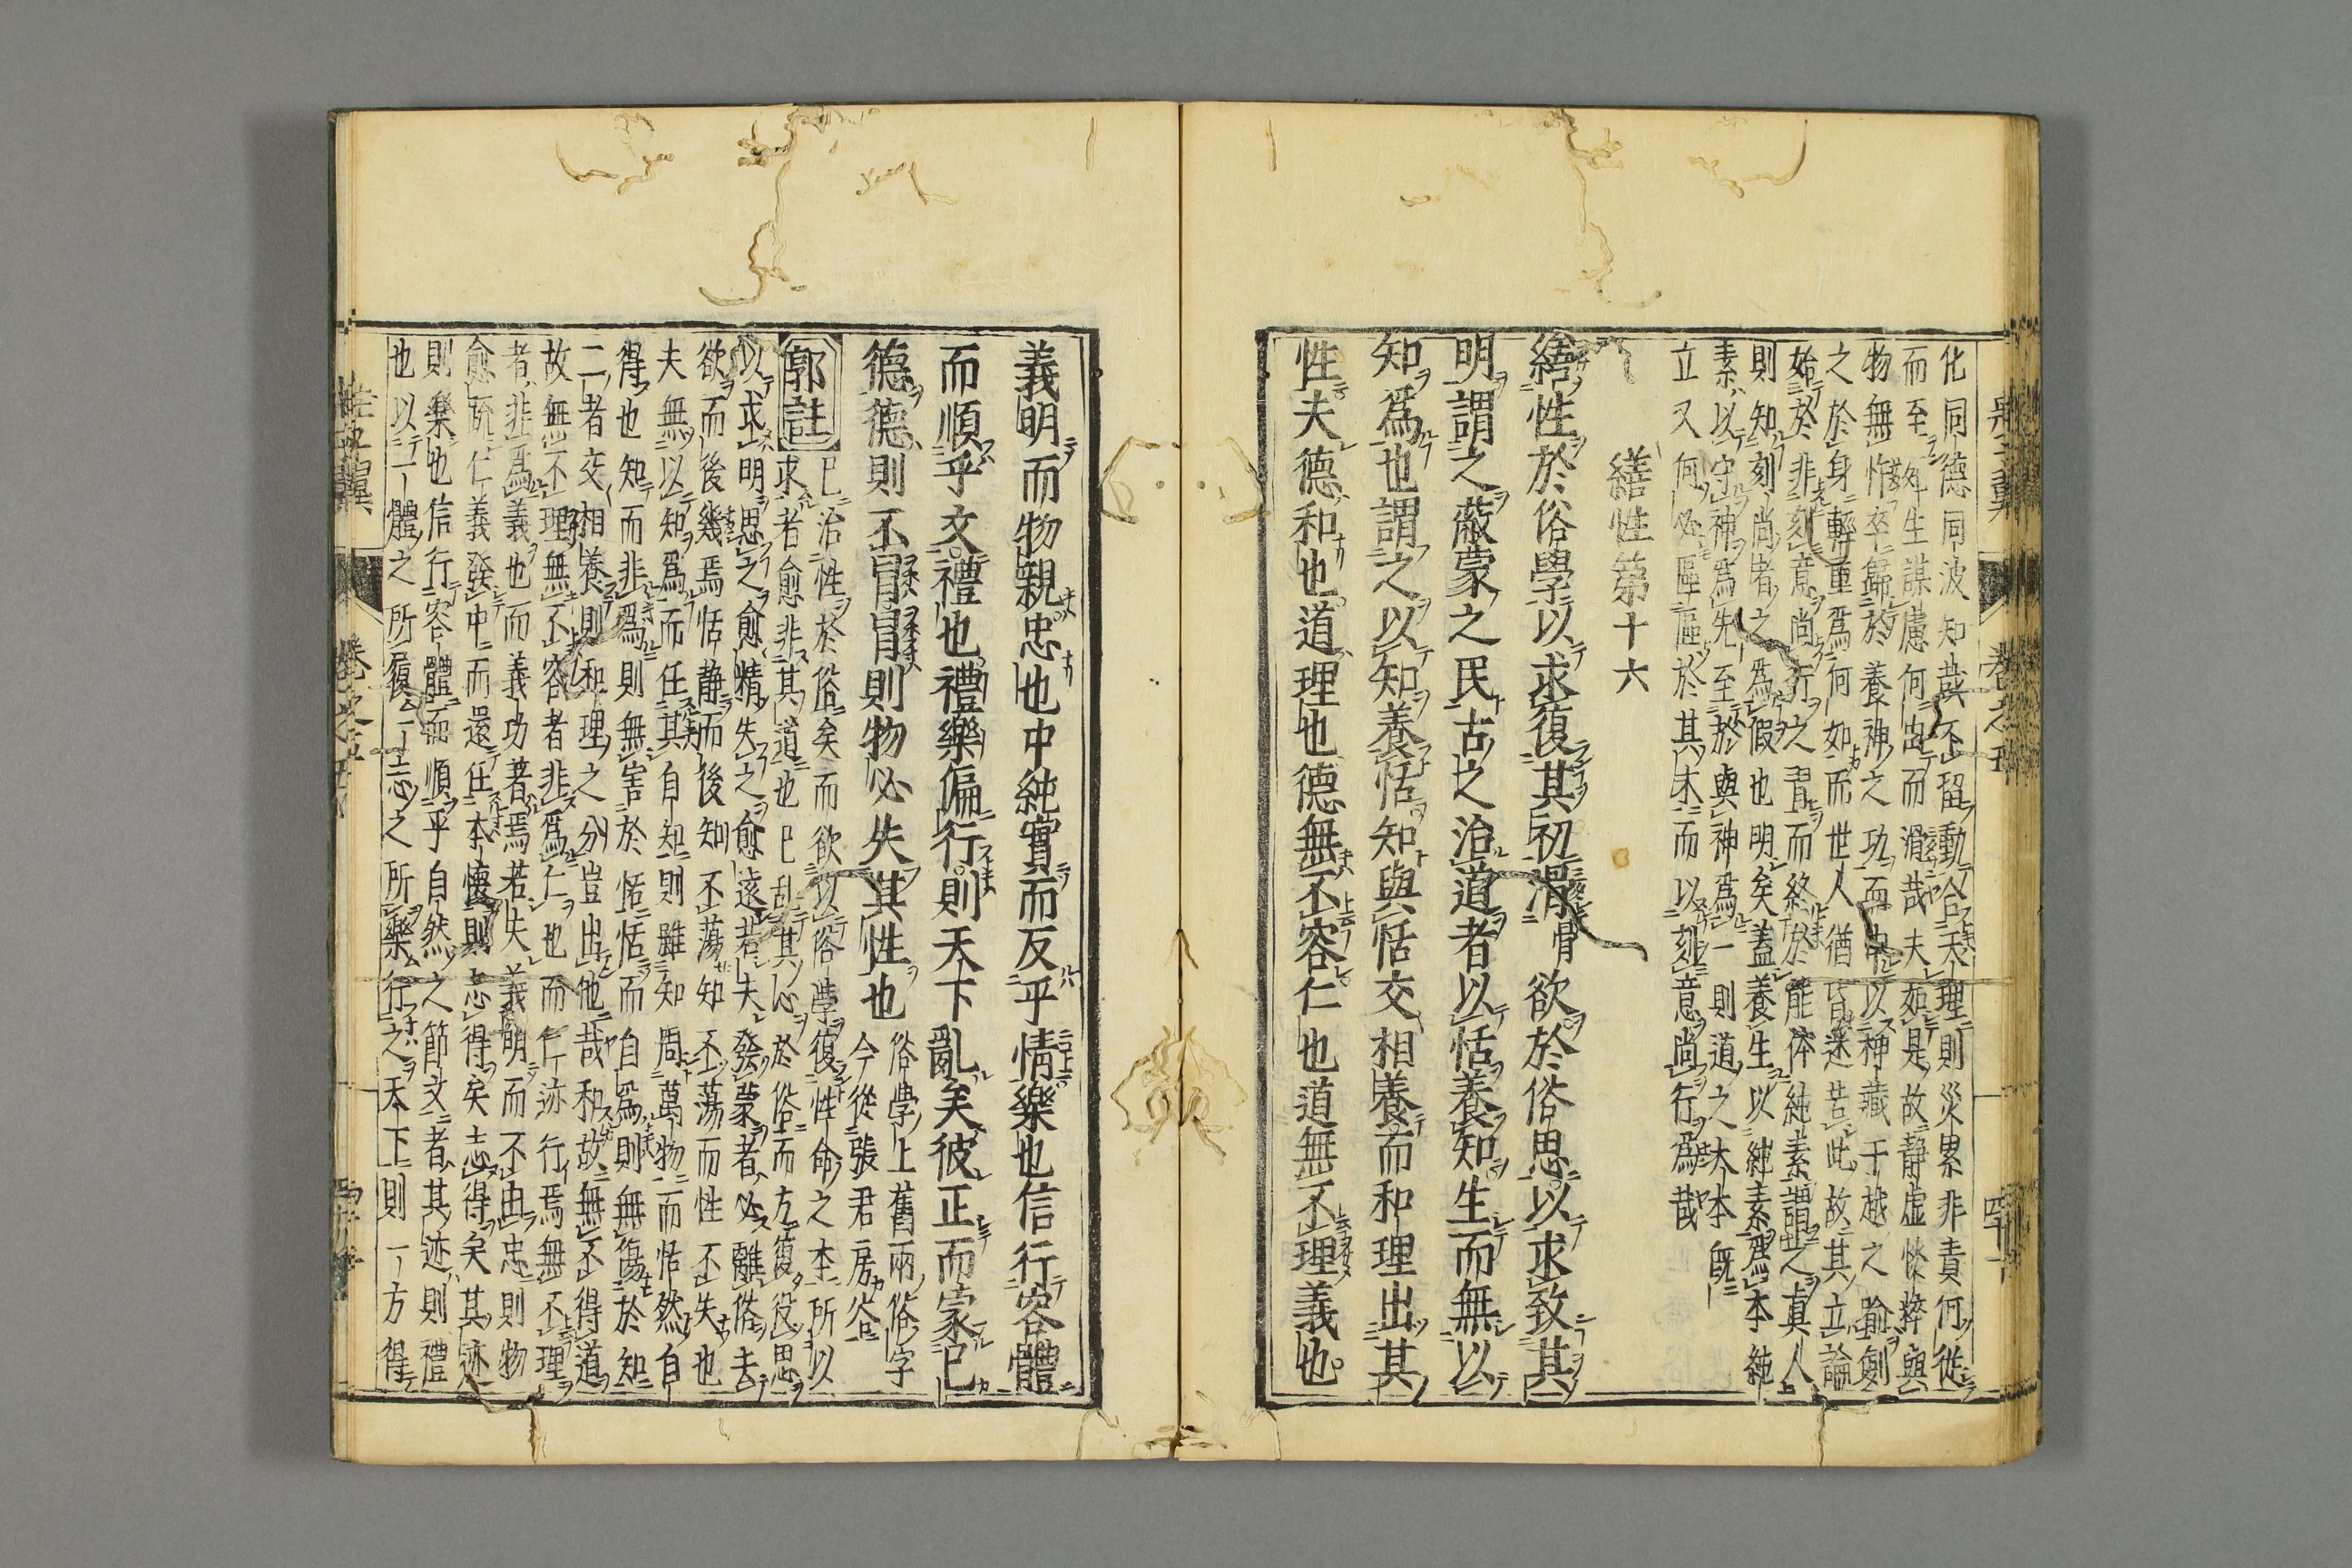 化同德同波知哉不留動合天理則災累非責何從
而至外生謀慮何出而滑哉夫如是故静虛恢粹與
物無忤卒歸於養神之功而申以神藏于越之喻劍
之於身輕重爲何如而世人猶皆迷苦此故其立論
始於非刻意尚行之習而終於能体純素謂之真人
則知刻尚者之爲假也明矣蓋養生以純素爲本純
素以守神爲先至於與神爲一則道之大本既
立又何必區區於其末而以刻意尚行爲哉
繕性第十六
繕性於俗學以求復其初滑欲於俗思以求致其
明謂之蔽蒙之民古之治道者以恬養知生而無以
知爲也謂之以知養恬知與恬交相養而和理出其
性夫德和也道理也德無不容仁也道無不理義也
義明而物親忠也中純實而反乎情樂也信行容體
而順乎文禮也禮樂偏行則天下亂矣彼正而蒙已
德德則不冒冒則物必失其性也
俗學上舊兩俗字
今從張君房
郭註
已治性於俗矣而欲以俗學復性命之本所以
求者愈非其道也已乱其心於俗而方復役思
以求明思之愈精失之愈遠若夫發蒙者必離俗去
欲而後幾焉恬静而後知不蕩知不蕩而性不失也
夫無以知爲而任其自知則雖知周萬物而恬然自
得也知而非爲則無害於恬恬而自爲則無傷於知
二者交相養則和理之分豈出他哉和故無不得道
故無不理無不容者非爲仁也而仁迹行焉無不理
者非爲義也而義功著焉若夫義明而不由忠則物
愈疏仁義發中而還任本懷則志得矣志得矣其迹
則樂也信行容體而順乎自然之節文者其迹則禮
也以一體之所履一志之所樂行之天下則一方得